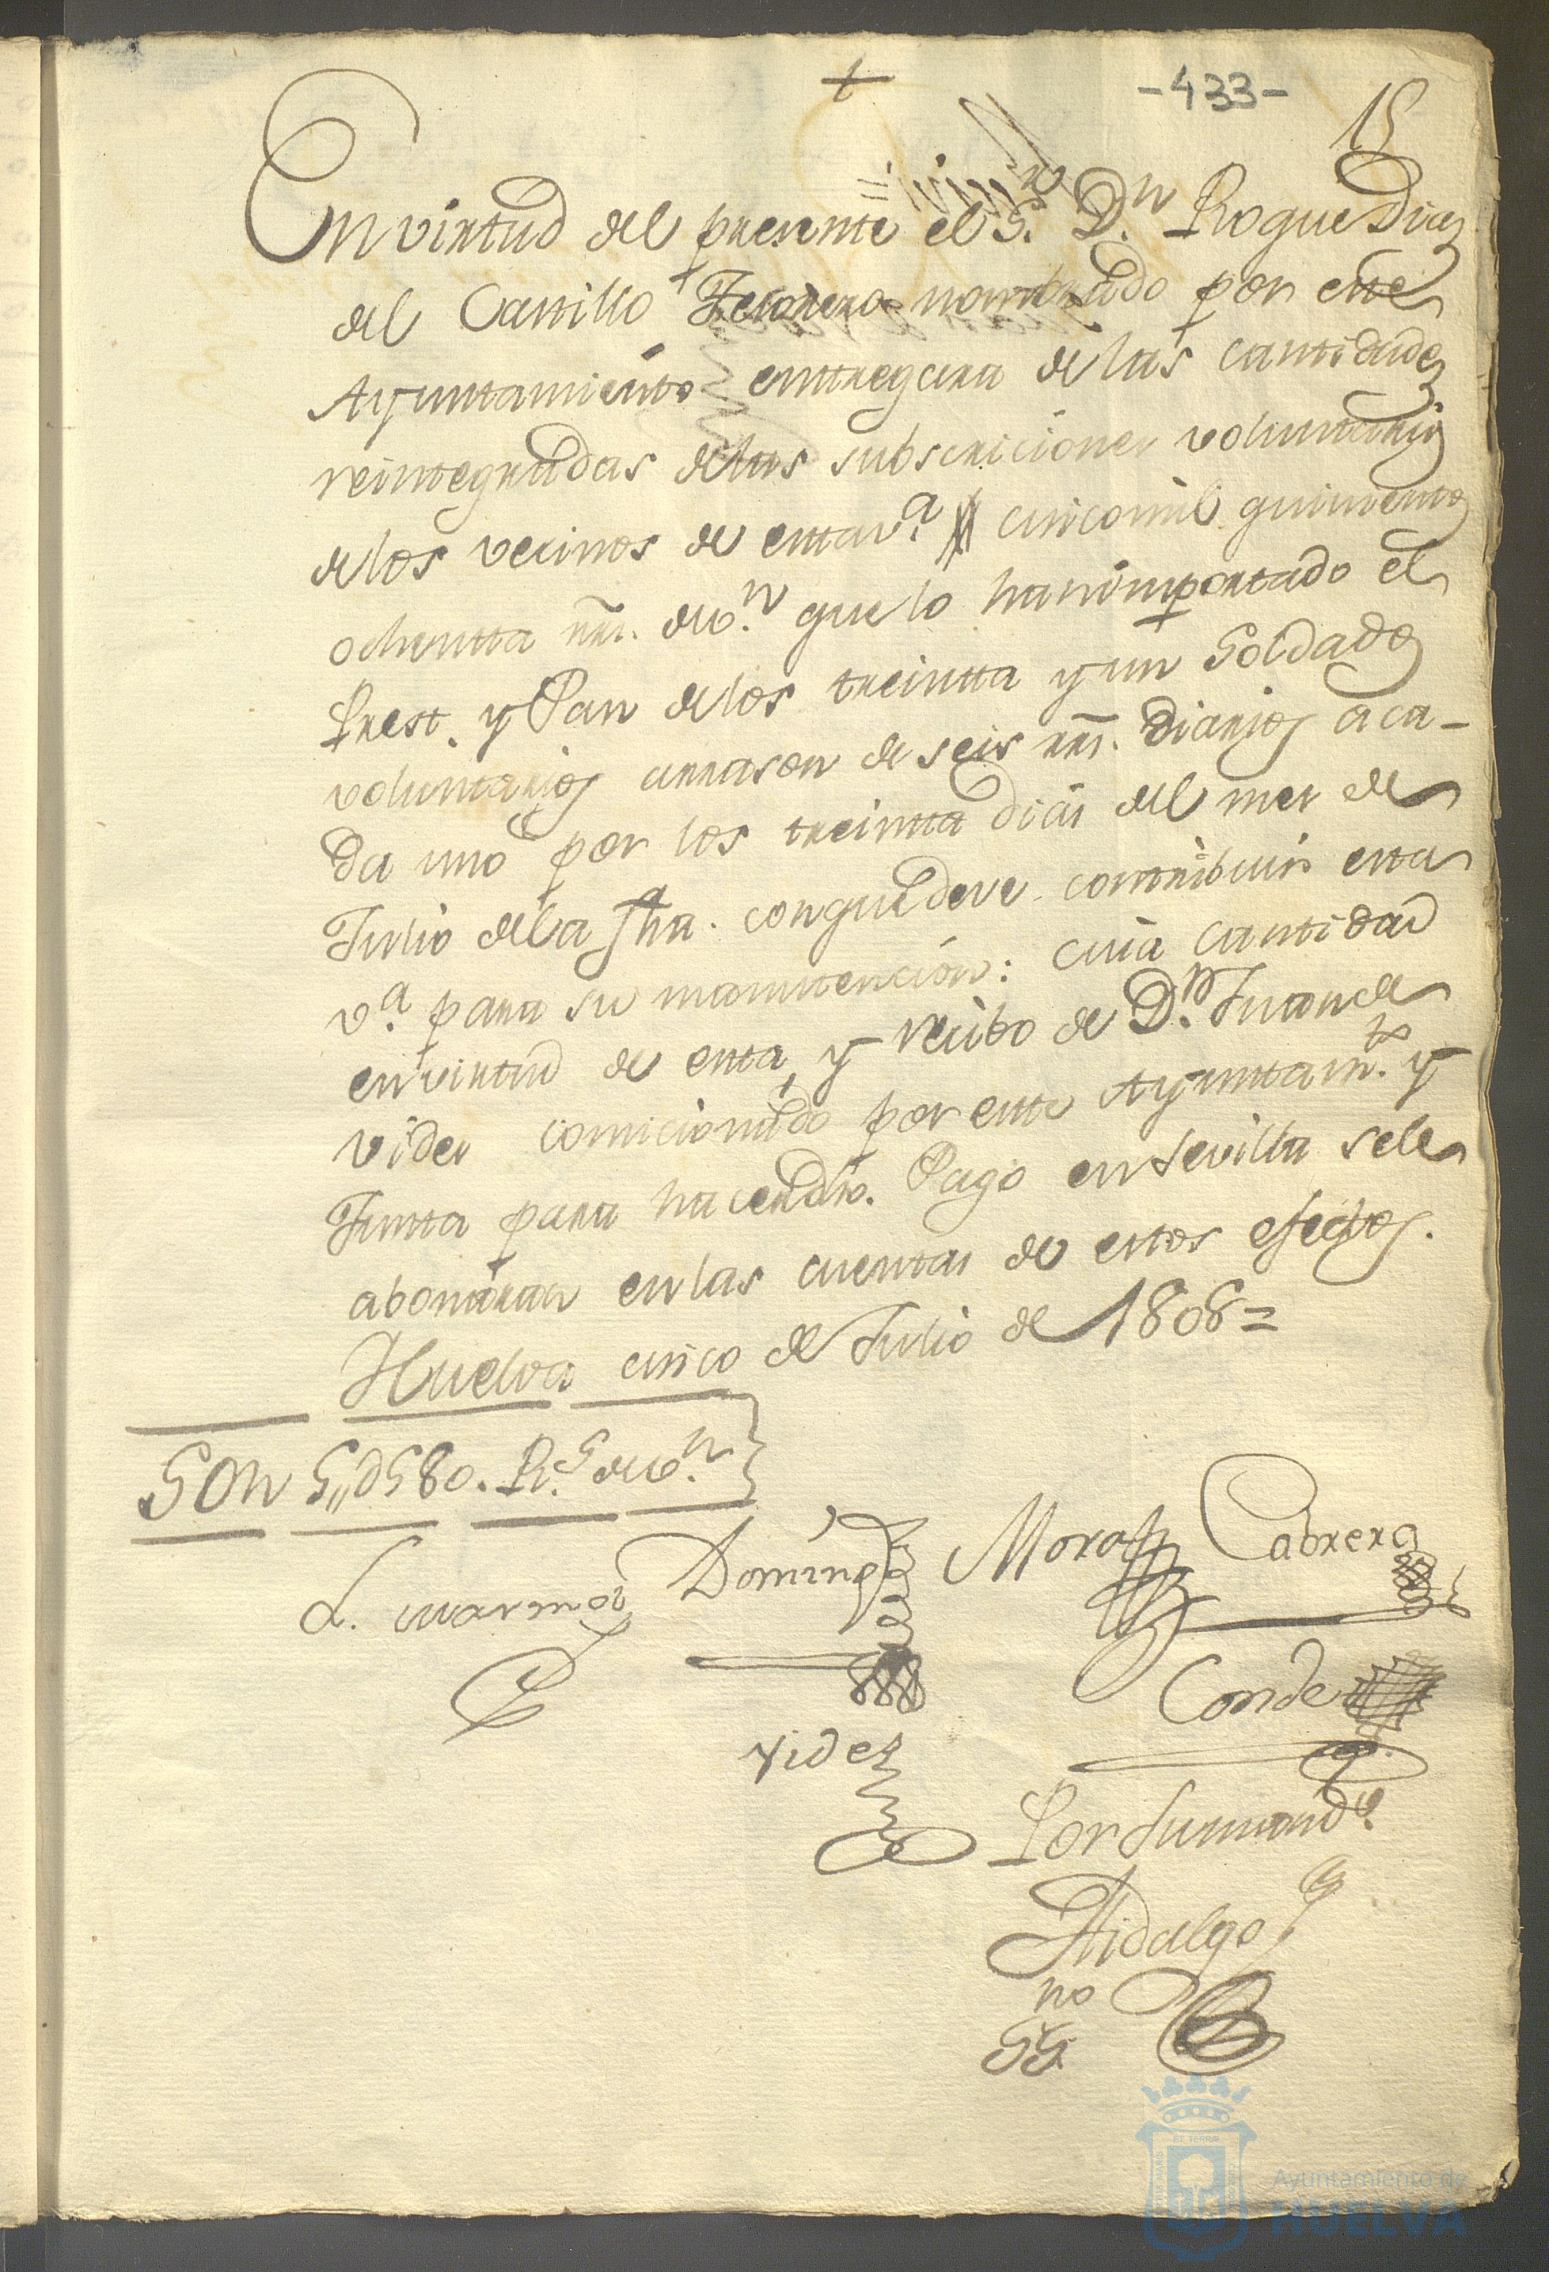 -433-
15
En virtud del presente el S.or D.n Roque Diaz
del Castillo Tesorero nombrado por este
Ayuntamiento enttregara de las cantidades
reintegradas delas subscriciones voluntarias
delos vecinos de estta v.a cinco mil quinientos
ochentta rr.s de v.n que lo han importado el
Prest. y Pan delos treintta y un Soldados
voluntarios arrason de seis rr.s diarios a ca-
da uno por los treintta dias del mes de
Julio dela fha. conque deve contribuir estta
v.a para su manutencion: cuia cantidad
en virtud de estta, y recibo de D.n Juan de
Vides comicionado por estte Ayuntam.to y
Juntta para hacer dho. Pago en Sevilla sele
abonaran en las cuentas de estos efectos.
Huelva cinco de Julio de 1808=
Son 5,,d580. R.s de v.n
Doming.z
Mora
Cabrera
Conde
Videz
Por su mand.o
Hidalgo
no
SS.
Ayuntamiento de
HUELVA